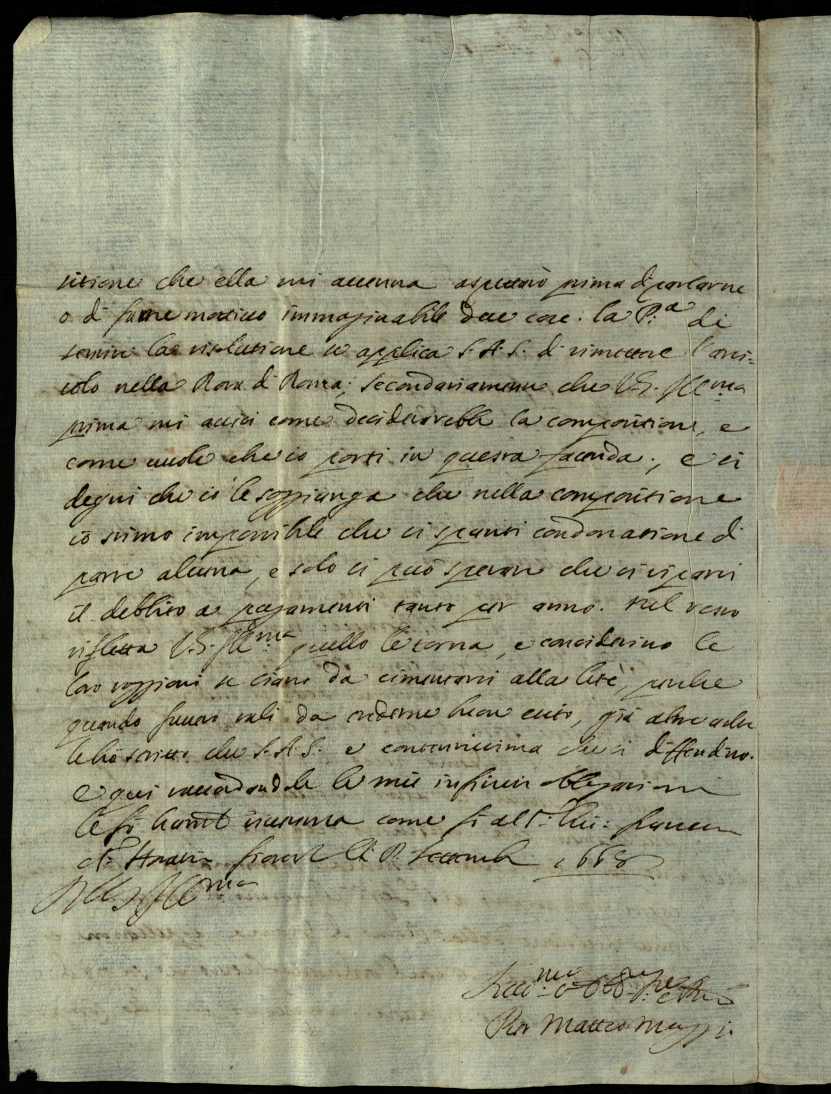 sitione che ella mi accenna aspetterò prima di parlarne
o di farne mottivo immaginabile due cose. la P.ª di
sentire la risolutione se applica S.A.S. di rimettere l'arti-
colo nella Rota di Roma; secondariamente che V.S. Ill.ma
prima mi avvisi come desiderarebbe la compositione, e
come vuole che io porti in questa facenda; e si
degni che io le soggiunga che nella compositione
io stimo impossibile che si spunti condonatione di
parte alcuna, e solo si può sperare che si riparti
il debbito a pagamenti tanto per anno. Nel resto
rifletta V.S. Ill.ma quello le torna, e considerino le
loro raggioni se siano da cimentarsi alla lite, perche
quando fussero tali da crederne buon esito, già altre volte
le hò scritto che S.A.S. è contentissima che si diffendino.
E qui ratificandole le mie infinite obligationi
le fò come fò al S.r
Firenze li 8. Settembre 1668
Di V.S. Ill.ma
Pier Matteo Maggi.